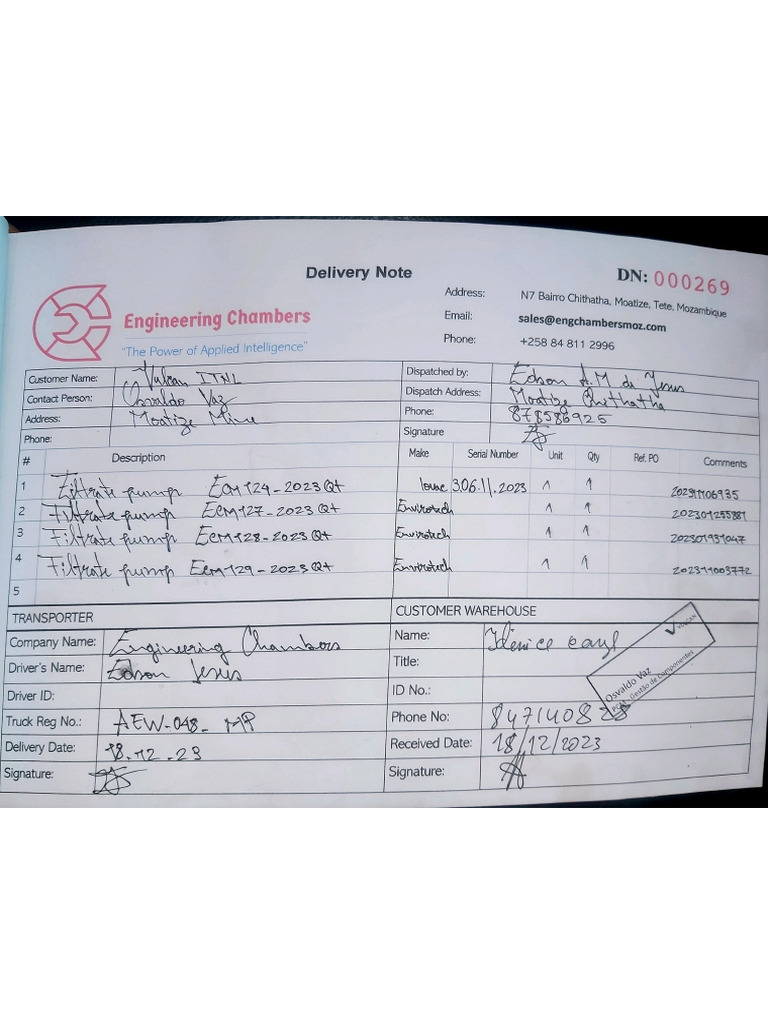 Delivery Note
DN: 000269
Engineering Chambers
"The Power of Applied Intelligence"
Address: N7 Bairro Chithatha, Moatize, Tete, Mozambique
Email: sales@engchambersmoz.com
Phone: +258 84 811 2996
Customer Name: Vulcan ITNL
Contact Person: Osvaldo Vaz
Address: Moatize Mine
Phone:
Dispatched by: Edson A.M de Jesus
Dispatch Address: Moatize Chithatha
Phone: 878586925
Signature
# Description Make Serial Number Unit Qty Ref. PO Comments
1 Filtrate pump ECM124-2023Qt 3.06.11.2023 1 1 202311106935
2 Filtrate pump ECM127-2023Qt Envirotech 1 1 202301255881
3 Filtrate pump ECM128-2023Qt Envirotech 1 1 202301931047
4 Filtrate pump ECM129-2023Qt Envirotech 1 1 202311003772
5
TRANSPORTER
Company Name: Engineering Chambers
Driver's Name: Edson Jesus
Driver ID:
Truck Reg No.: AEW-048-MP
Delivery Date: 18.12.23
Signature:
CUSTOMER WAREHOUSE
Name:
Title:
ID No.:
Phone No: 8471408
Received Date: 18/12/2023
Signature:
VULCAN
Osvaldo Vaz
Gestão de Componentes